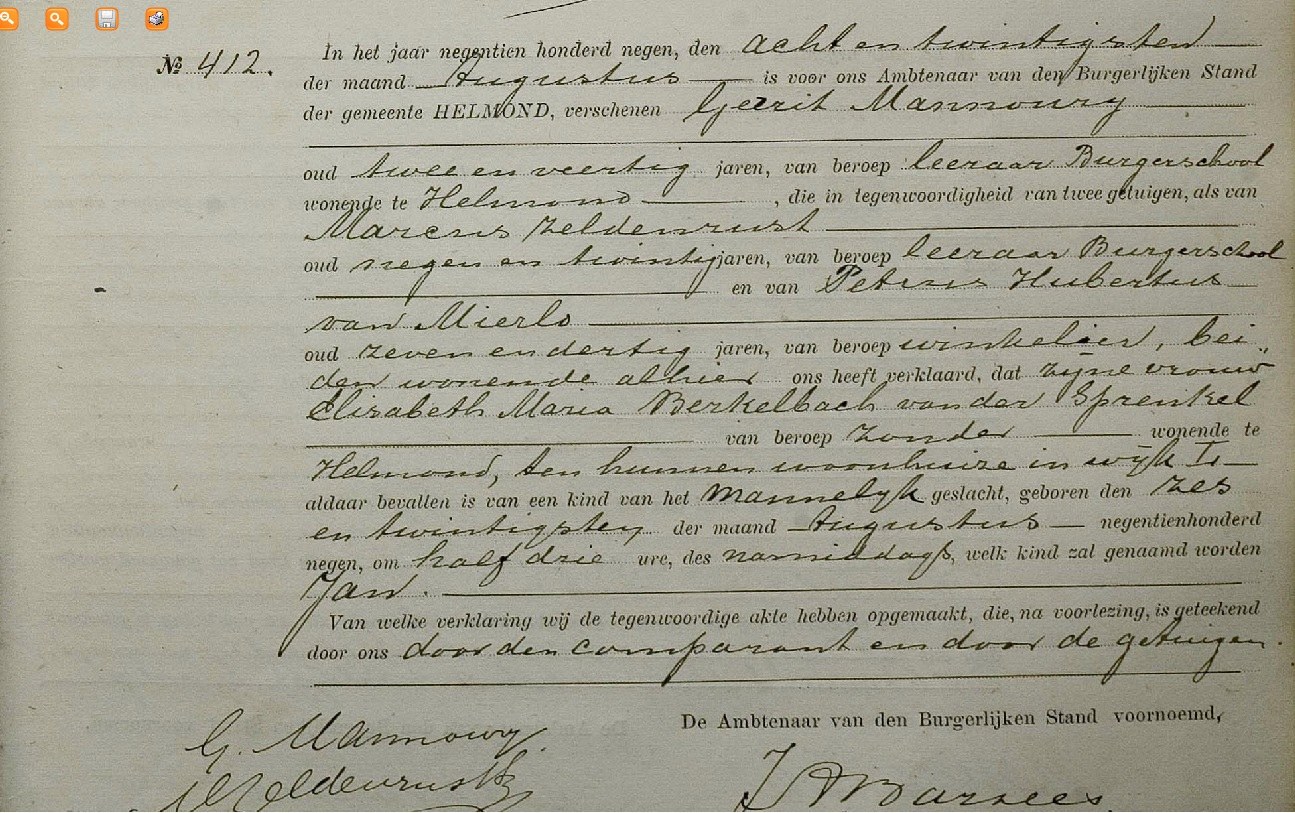 № 412.
In het jaar negentien honderd negen, den acht en twintigsten
der maand Augustus is voor ons Ambtenaar van den Burgerlijken Stand
der gemeente HELMOND, verschenen Gerrit Mannoury
oud twee en veertig jaren, van beroep leeraar Burgerschool
wonende te Helmond, die in tegenwoordigheid van twee getuigen, als van
Marcus Zeldenrust
oud negen en twintig jaren, van beroep leeraar Burgerschool
en van Petrus Hubertus
van Mierlo
oud zeven en dertig jaren, van beroep winkelier, bei„
den wonende alhier ons heeft verklaard, dat zijne vrouw
Elizabeth Maria Berkelbach van der Sprenkel
van beroep zonder wonende te
Helmond, ten hunnen woonhuize in wijk I
aldaar bevallen is van een kind van het mannelijk geslacht, geboren den zes
en twintigsten der maand Augustus negentienhonderd
negen, om half drie ure, des namiddags, welk kind zal genaamd worden
Jan.
Van welke verklaring wij de tegenwoordige akte hebben opgemaakt, die, na voorlezing, is geteekend
door ons door den comparant en door de getuigen.
De Ambtenaar van den Burgerlijken Stand voornoemd,
G. Mannoury.
MZeldenrust